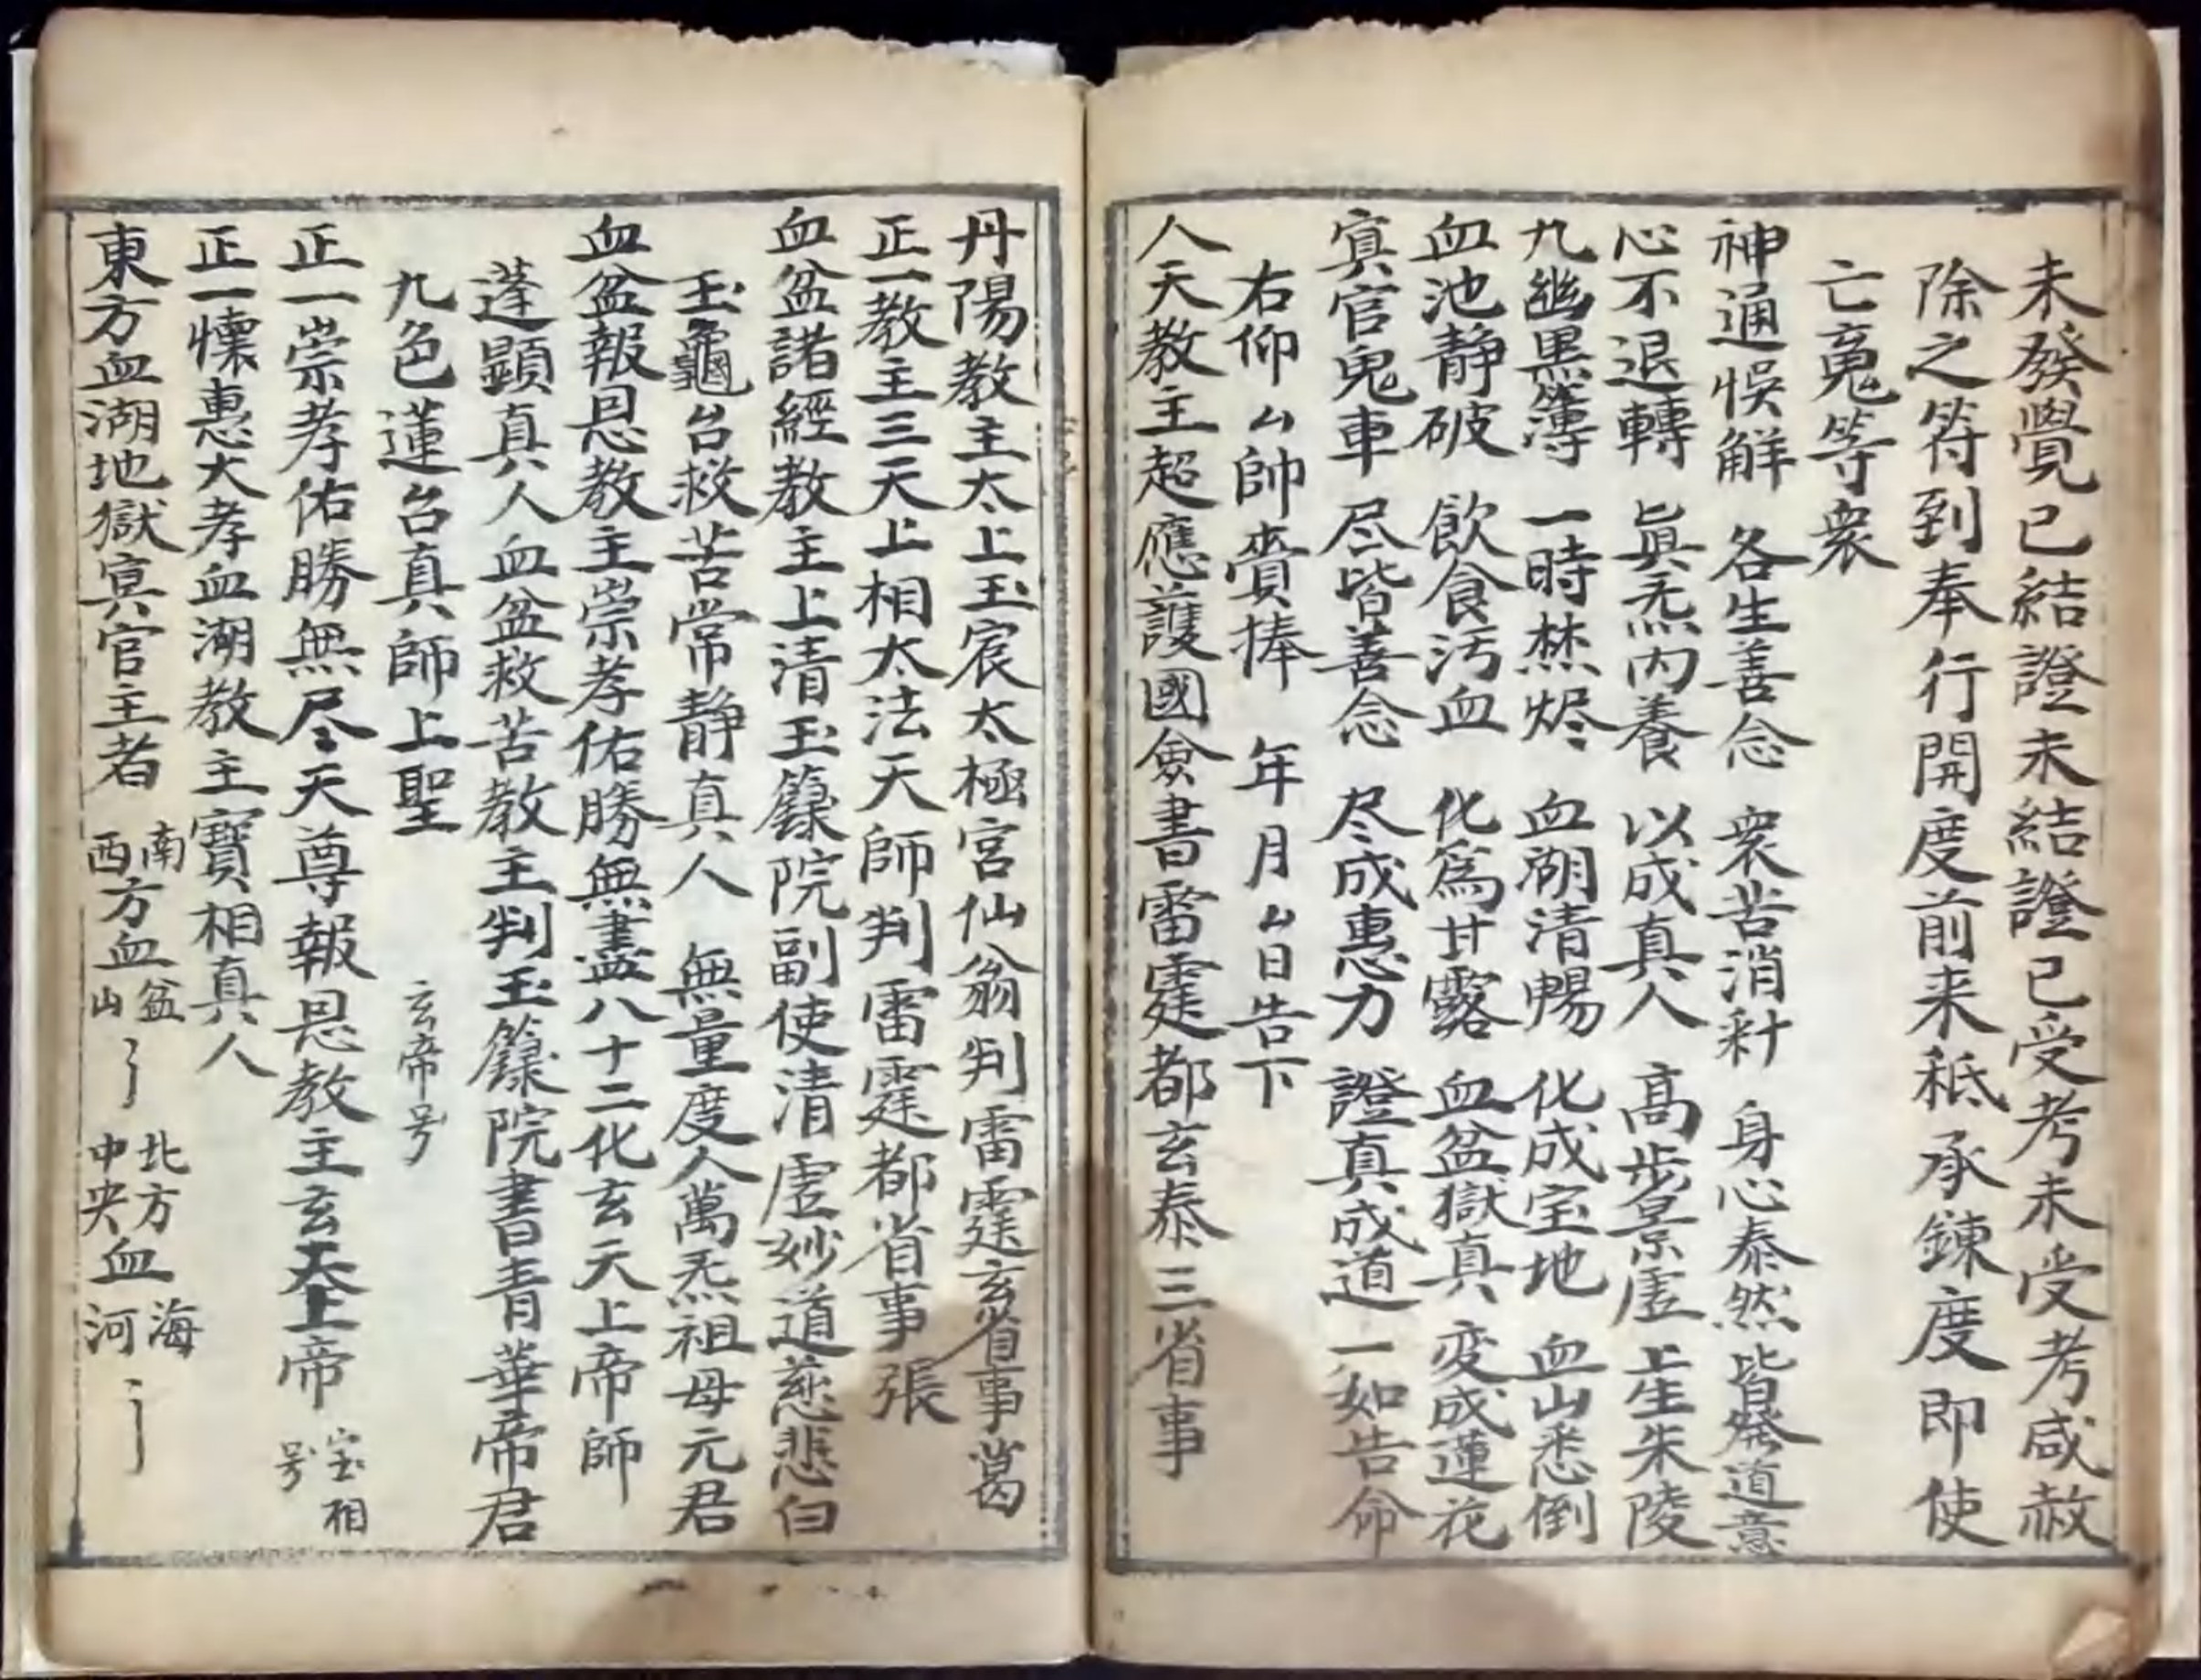 未發覺已結證未結證已受考未受考咸赦
除之符到奉行開度前来秪承鍊度即使
亡䰟等衆
神通悞觧 各生善念 衆苦消釆 身心泰然 皆發道意
心不退轉 眞炁内養 以成真人 高步景虛 上生朱陵
九幽黒簿 一時焚烬 血湖清暢 化成宝地 血山悉倒
血池静破 飲食汚血 化為甘露 血盆獄真 变成蓮花
冥官鬼車 尽皆善念 尽成惠力 證真成道 一如告命
右仰厶帥賫捧 年月厶日告下
人天教主超應護國僉書雷霆都玄泰三省事
丹陽教主太上玉宸太極宮仙翁判雷霆玄省事葛
正一教主三天上相太法天師判雷霆都省事張
血盆諸經教主上清玉籙院副使清虛妙道慈悲白
玉龜台救苦常静真人 無量度人萬炁祖母元君
血盆報恩教主崇孝佑勝無盡八十二化玄天上帝師
蓬顕真人血盆救苦教主判玉籙院書青華帝君
九色蓮台真師上聖 玄帝号
正一崇孝佑勝無尽天尊報恩教主玄天上帝 宝相号
正一懷惠大孝血湖教主寶相真人
東方血湖地獄冥官主者 南西方血盆山 北方中央血海河